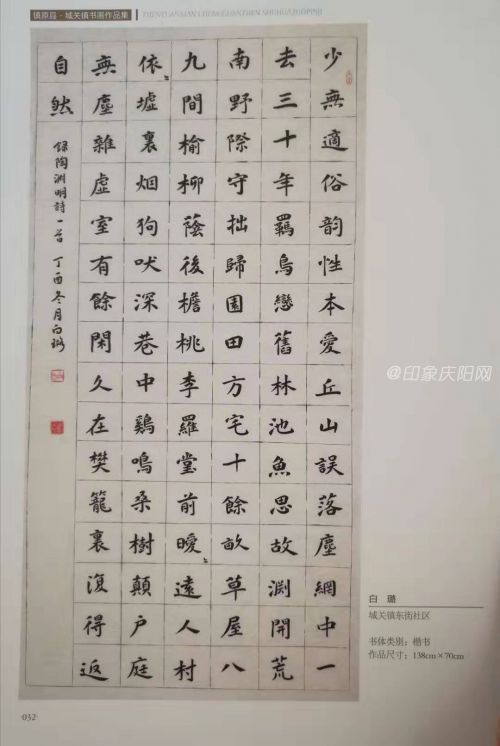 镇原县·城关镇书画作品集 ZHENYUANXIAN CHENGGUANZHEN SHUHUAZUOPINJI
少無適俗韵性本愛丘山誤落塵網中一
去三十年羈鳥戀舊林池魚思故淵開荒
南野際守拙歸園田方宅十餘畝草屋八
九間榆柳蔭後檐桃李羅堂前曖〻遠人村
依〻墟裏烟狗吠深巷中鷄鳴桑樹顛户庭
無塵雜虛室有餘閑久在樊籠裏復得返
自然
録陶淵明詩一首 丁酉冬月白璐
@印象庆阳网
白 璐
城关镇东街社区
书体类别：楷书
作品尺寸：138cm×70cm
032